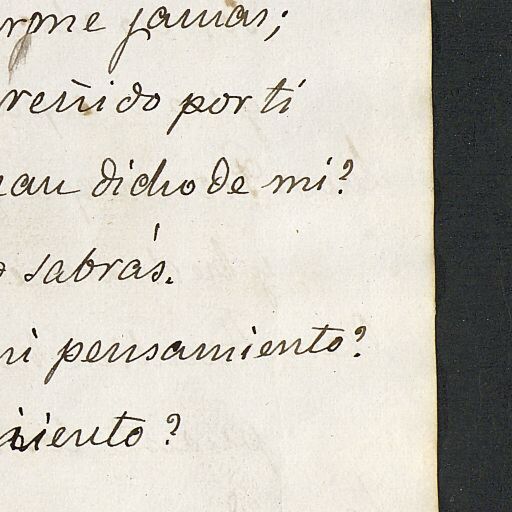 jamas;
reñido por ti
han dicho de mi?
sabrás.
mi pensamiento?